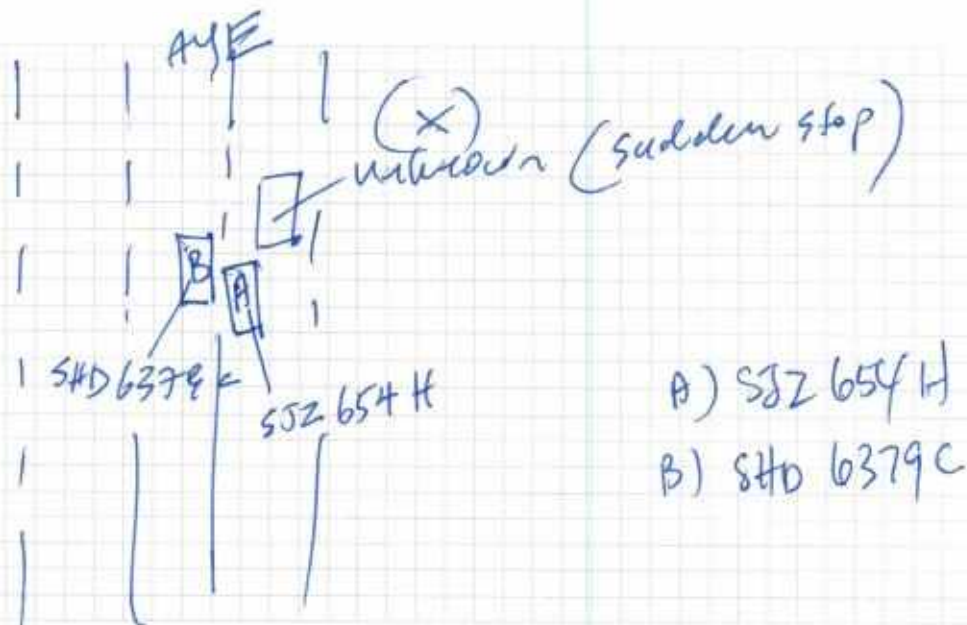 AYE
(X)
unknown (sudden stop)
B
A
SHD 6379C
SJZ 654 H
A) SJZ 654 H
B) SHD 6379C